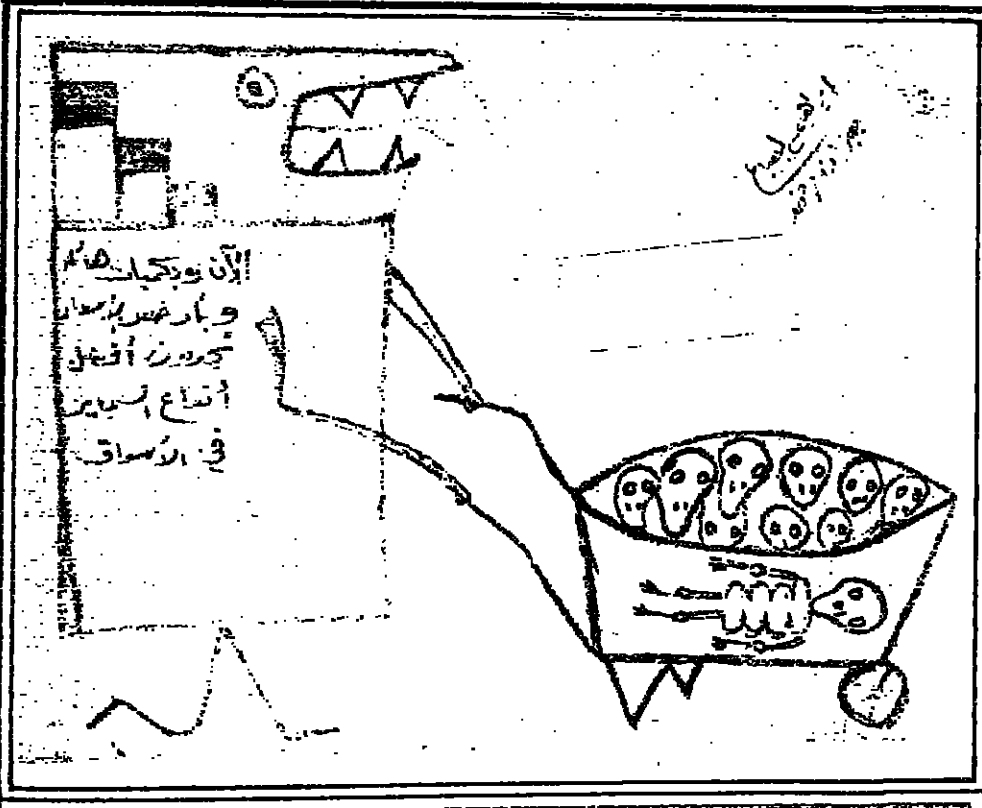 الآن وبكميات هائلة
وبأرخص الأسعار
تجدون أفضل
أنواع السجاير
في الأسواق